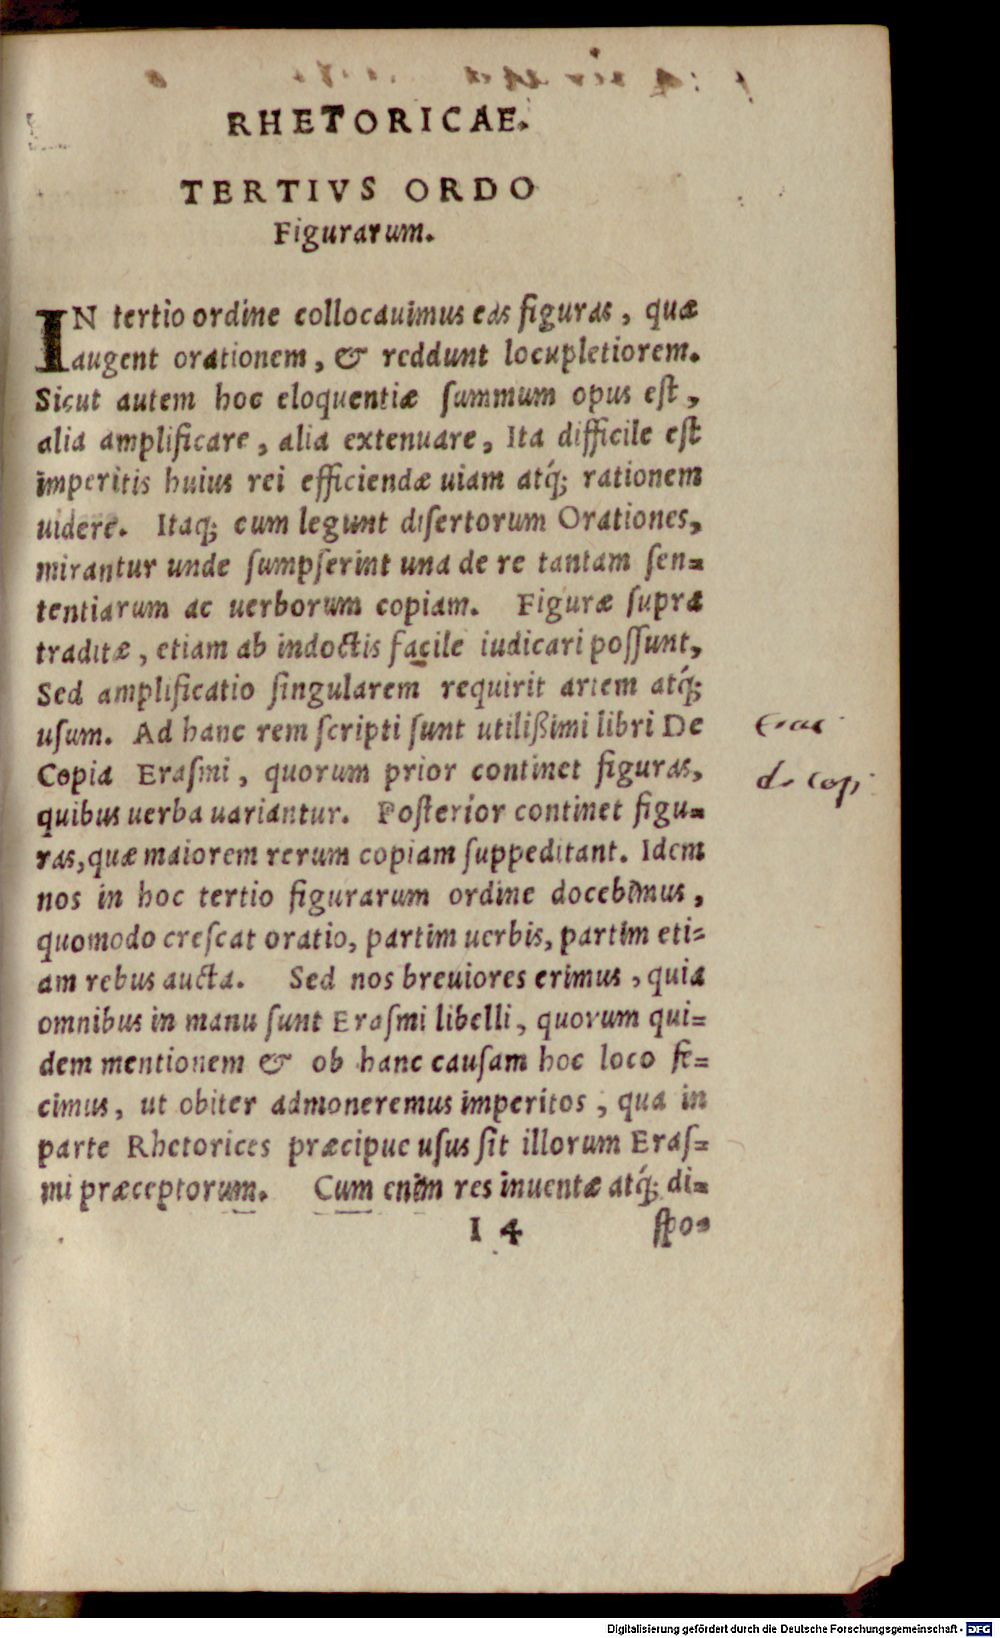 RHETORICAE.
TERTIVS ORDO
Figurarum.
IN tertio ordine collocauimus eas figuras, quæ
augent orationem, & reddunt locupletiorem.
Sicut autem hoc eloquentiæ ſummum opus eſt,
alia amplificare, alia extenuare, Ita difficile eſt
imperitis huius rei efficiendæ uiam atq́; rationem
uidere. Itaq; cum legunt diſertorum Orationes,
mirantur unde ſumpſerint una de re tantam ſen=
tentiarum ac uerborum copiam. Figuræ ſupra
traditæ, etiam ab indoctis facile iudicari poſſunt,
Sed amplificatio ſingularem requirit artem atq́;
uſum. Ad hanc rem ſcripti ſunt utilißimi libri De
Copia Eraſmi, quorum prior continet figuras,
quibus uerba uariantur. Poſterior continet figu=
ras, quæ maiorem rerum copiam ſuppeditant. Idem
nos in hoc tertio figurarum ordine docebimus,
quomodo creſcat oratio, partim uerbis, partim eti=
am rebus aucta. Sed nos breuiores erimus, quia
omnibus in manu ſunt Eraſmi libelli, quorum qui=
dem mentionem & ob hanc cauſam hoc loco fe=
cimus, ut obiter admoneremus imperitos, qua in
parte Rhetorices præcipue uſus ſit illorum Eraſ=
mi præceptorum. Cum enim res inuentæ atq́; di=
I 4 ſpo=
de copi
Digitalisierung gefördert durch die Deutsche Forschungsgemeinschaft - DFG